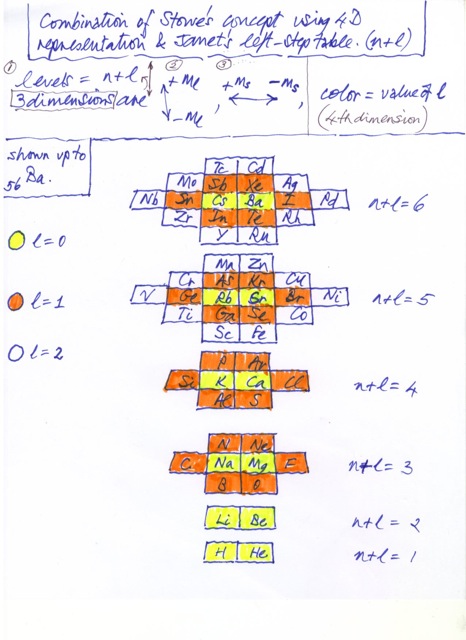 Combination of Stowe's concept using 4D
representation & Janet's left-step table. (n+l)
① levels = n+l
3 dimensions are
② +Ml
-Ml ,
③ +Ms -Ms ,
color = value of l
(4th dimension)
shown up to
56 Ba.
l=0
l=1
l=2
Tc Cd
Mo Sb Xe Ag
Nb Sn Cs Ba I Pd n+l=6
Zr In Te Rh
Y Ru
Mn Zn
Cr As Kr Cu
V Ge Rb Sr Br Ni n+l=5
Ti Ga Se Co
Sc Fe
P Ar
Si K Ca Cl n+l=4
Al S
N Ne
C Na Mg F n+l=3
B O
Li Be n+l=2
H He n+l=1